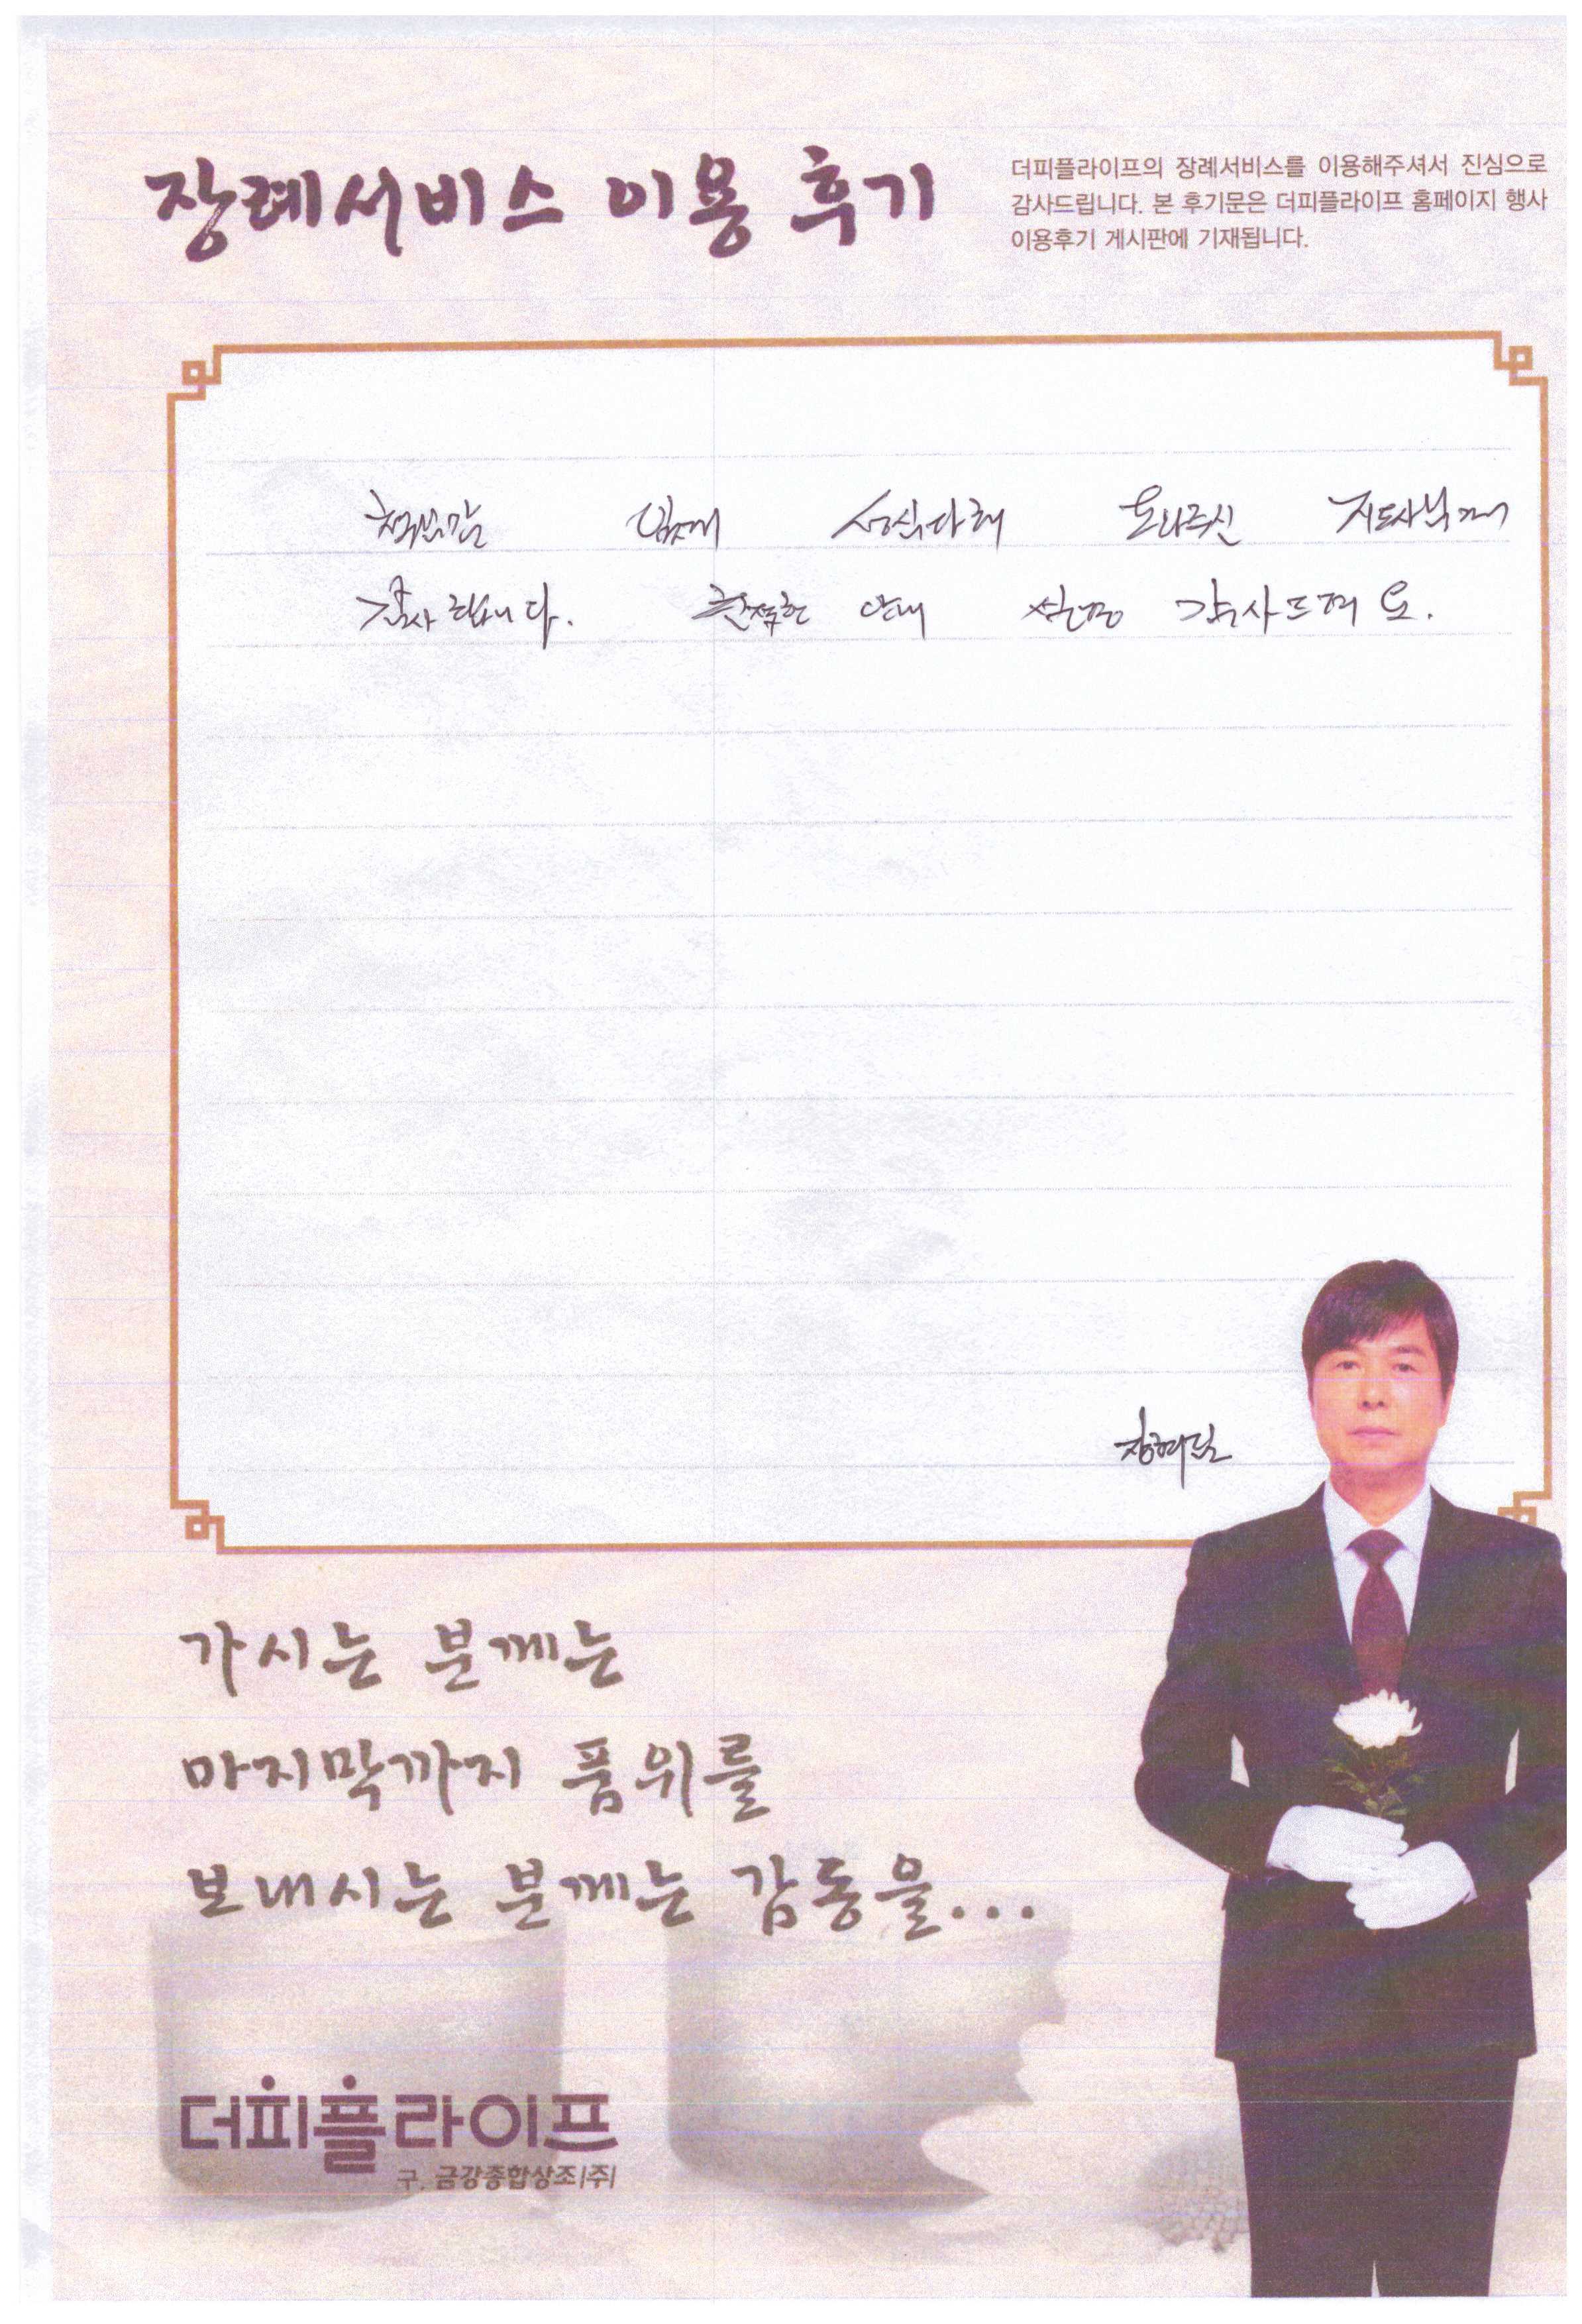 장례서비스 이용 후기
더피플라이프의 장례서비스를 이용해주셔서 진심으로
감사드립니다. 본 후기문은 더피플라이프 홈페이지 행사
이용후기 게시판에 기재됩니다.
책임감 있게 성심다해 도와주신 지도사님께
감사합니다. 친절한 안내 설명 감사드려요.
가시는 분께는
마지막까지 품위를
보내시는 분께는 감동을...
더피플라이프
구. 금강종합상조(주)